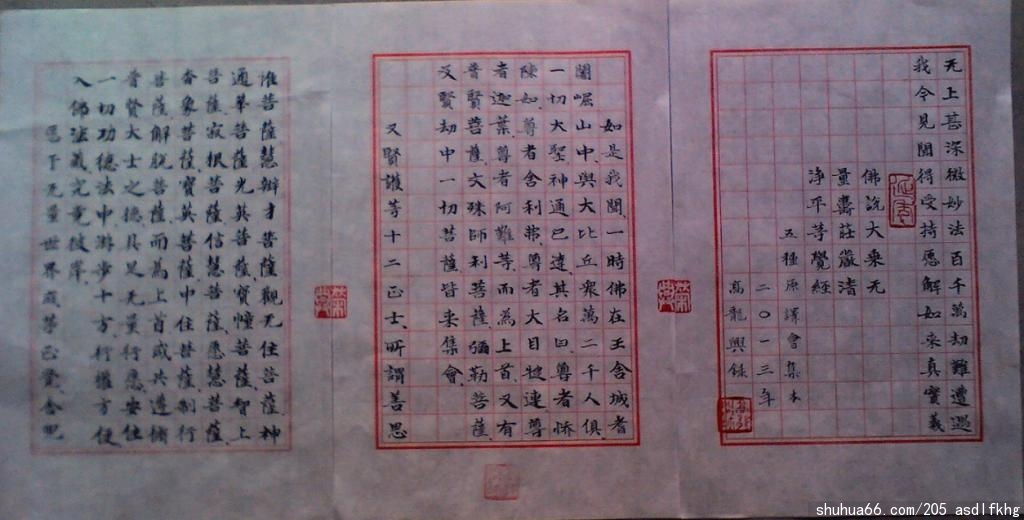 无上甚深微妙法百千萬劫難遭遇
我今見聞得受持愿解如来真實義
佛說大乘无
量壽莊嚴清
淨平等覺經
五種原譯會集本
二〇一三年
高龍興錄
如是我聞一時佛在王舍城耆
闍崛山中與大比丘衆萬二千人俱
一切大聖神通已達其名曰尊者憍
陳如尊者舍利弗尊者大目犍連尊
者迦葉尊者阿難等而為上首又有
普賢菩薩文殊師利菩薩彌勒菩薩
及賢劫中一切菩薩皆来集會
又賢護等十二正士所謂善思
惟菩薩慧辯才菩薩觀无住菩薩神
通華菩薩光英菩薩寶幢菩薩智上
菩薩寂根菩薩信慧菩薩愿慧菩薩
香象菩薩寶英菩薩中住菩薩制行
菩薩解脫菩薩而為上首咸共遵修
普賢大士之德具足无量行愿安住
一切功德法中游步十方行權方便
入佛法藏究竟彼岸
愿于无量世界成等正覺舍兜
shuhua66.com/205_asdlfkhg